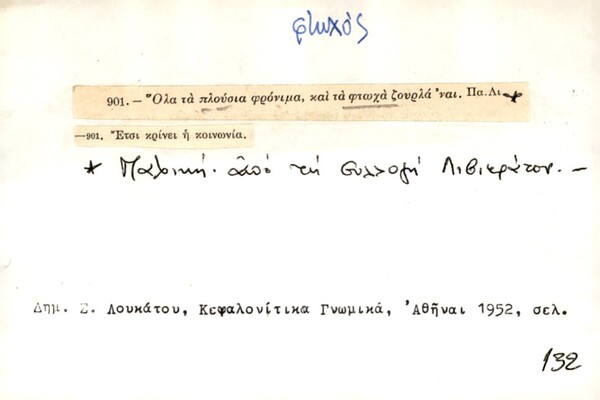 φτωχός
901. — Ὅλα τὰ πλούσια φρόνιμα, καὶ τὰ φτωχὰ ζουρλά 'ναι. Πα.Λι *
—901. Ἔτσι κρίνει ἡ κοινωνία.
* Παλικὴ. ἀπὸ τὴ συλλογὴ Λιβιεράτου. —
Δημ. Σ. Λουκάτου, Κεφαλονίτικα Γνωμικά, Ἀθῆναι 1952, σελ.
132